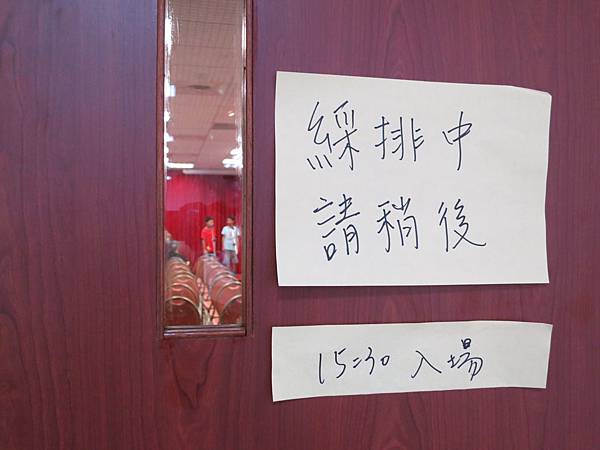 綵排中
請稍後
15:30 入場